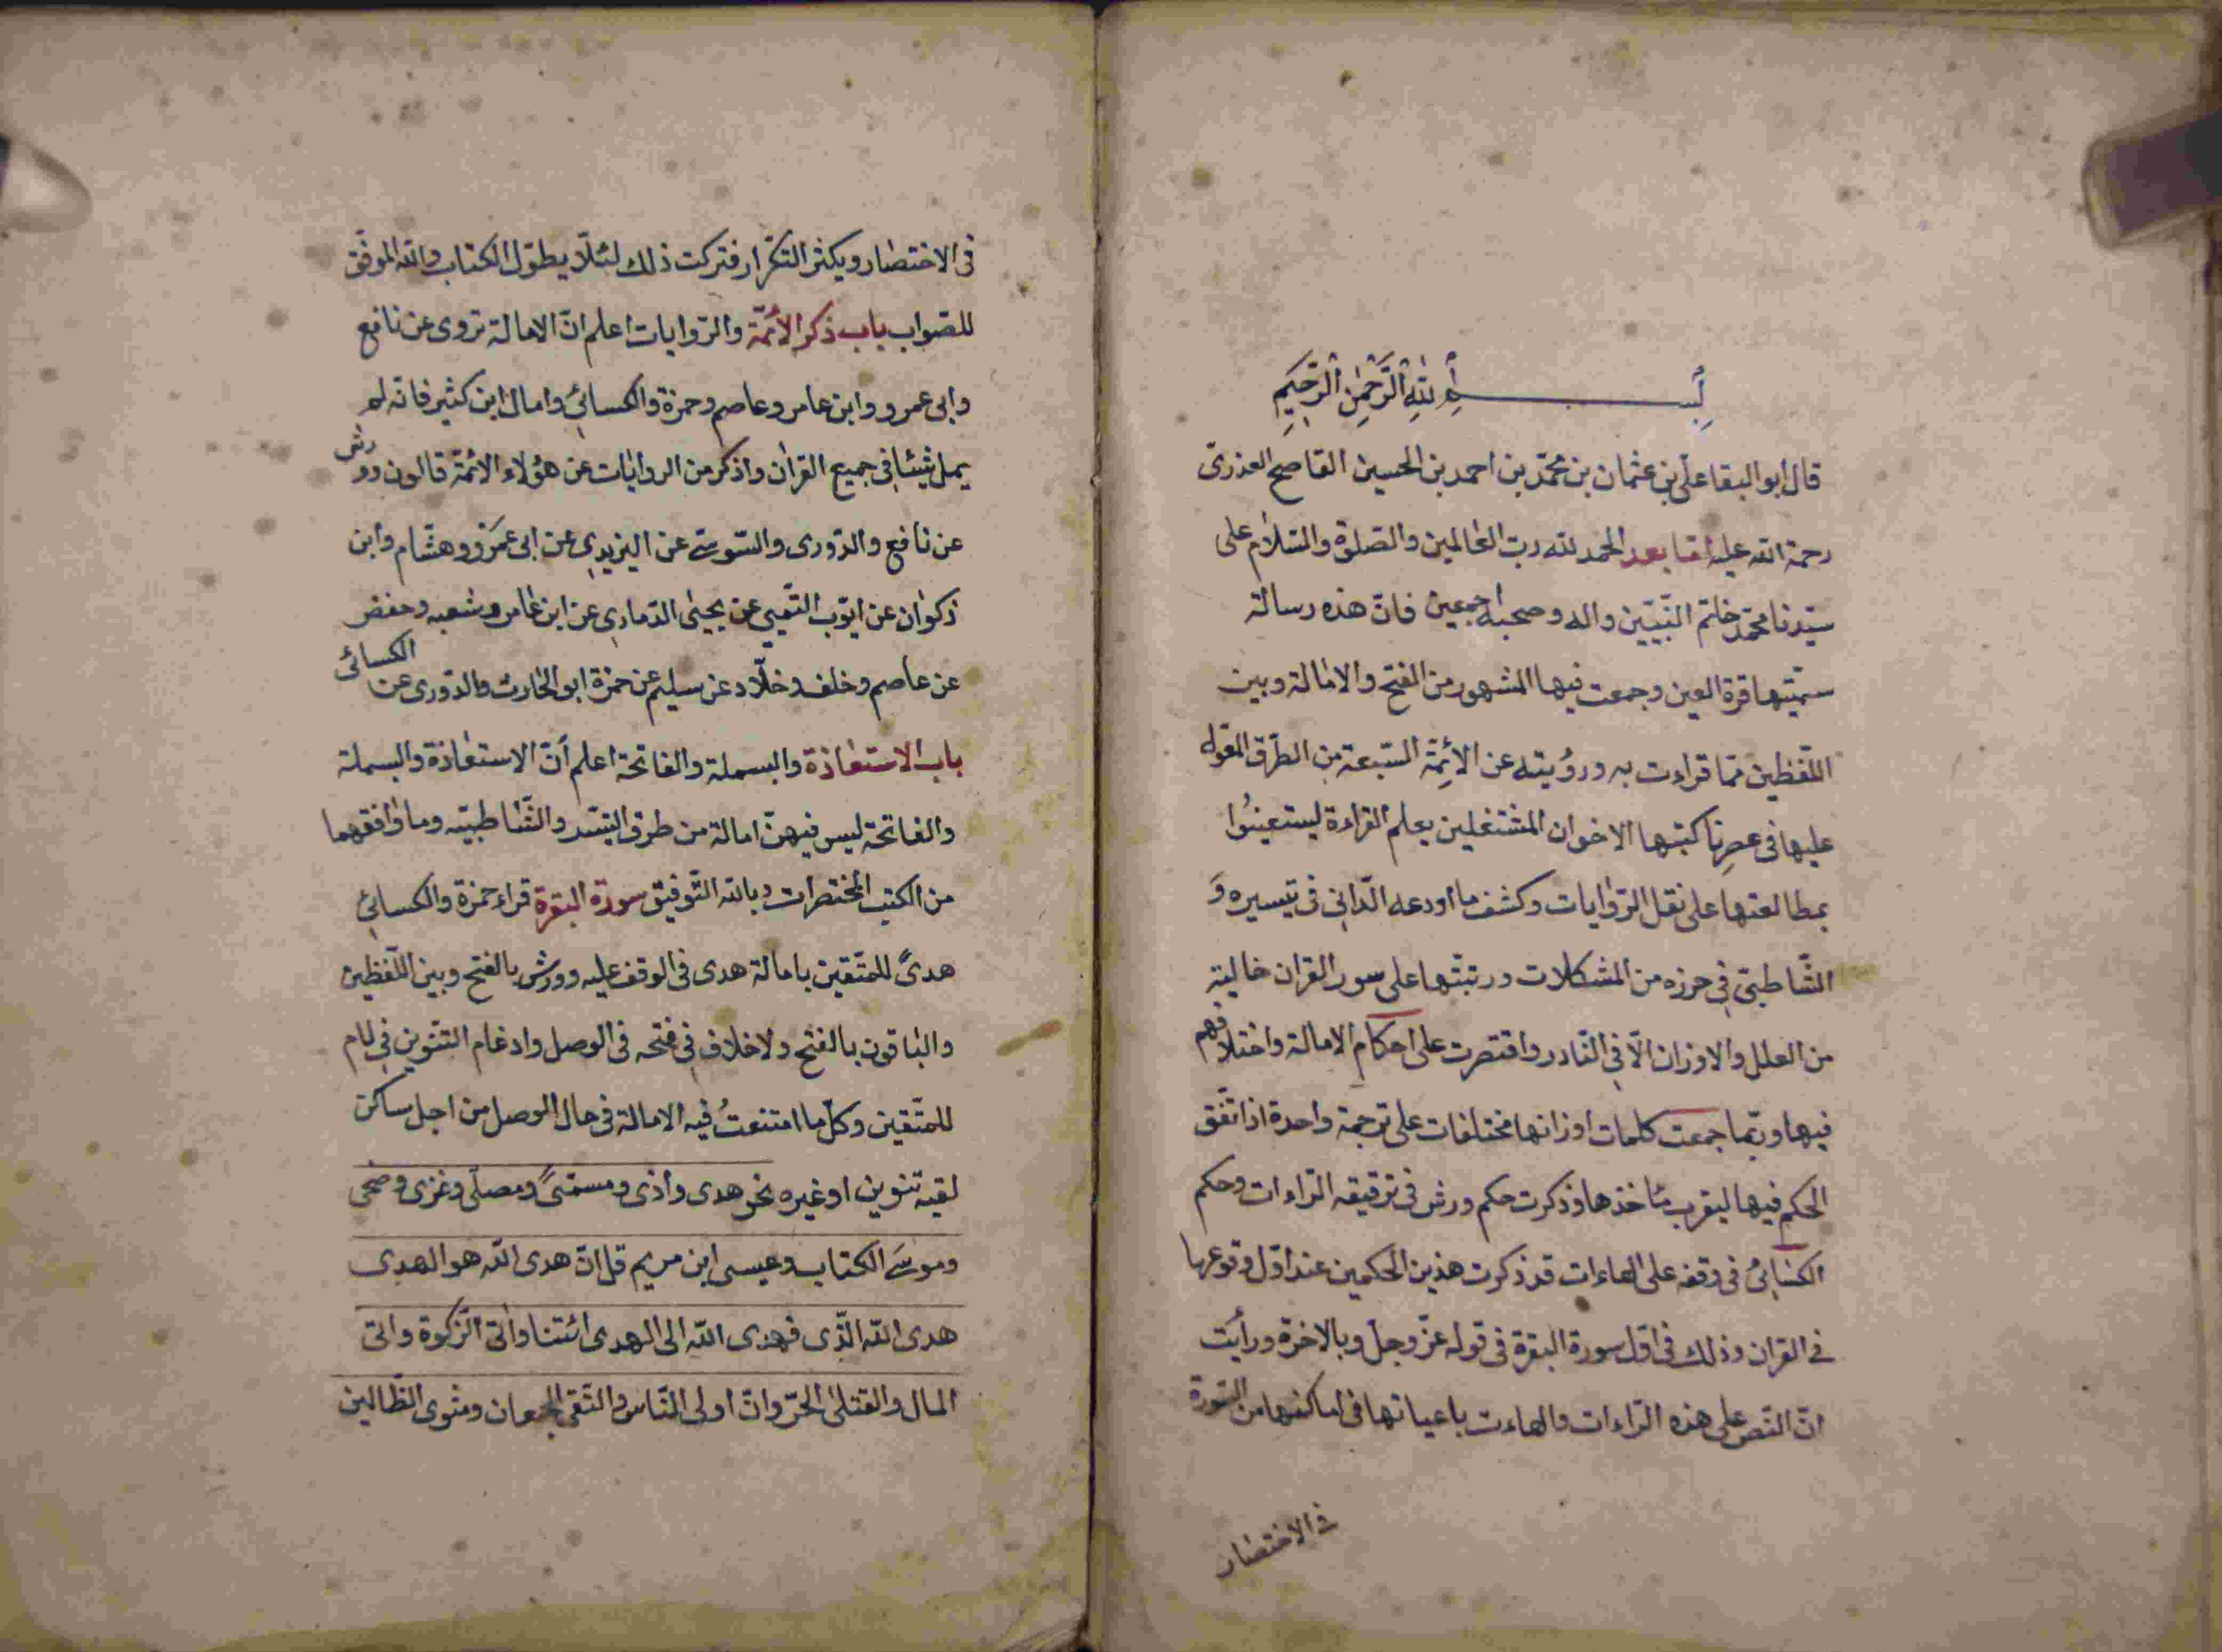 بسم الله الرحمن الرحيم
قال ابو البقا على بن عثمان بن محمّد بن احمد بن الحسين القاصح العذرىّ
رحمة الله عليه امّا بعد الحمد لله ربّ العٰالمين والصّلوة والسّلام على
سيّدنا محمّد خاتم النّبيّين واله وصحبه اجمعين فانّ هذه رسالة
سمّيتها قرة العين وجمعت فيها المشهور من الفتح والامٰالة وبين
اللّفظين ممّا قراءت به ورؤيته عن الائِمّة السّبعة من الطّرق المقوله
عليها فى عصرنا كتبتها الاخوان المشتغلين بعلم القراءة ليستعينُوا
بمطالعتها على نقل الرّوٰايات وكشف ما أودعه الدّانى فى تيسيره وَ
الشّاطبىّ فى حرزه من المشكلات ورتبتّها على سور القران خالية
من العلل والاوزان الّا فى النّادر واقتصرت على احكام الامالة واختلافهم
فيها وربّما جمعت كلمات اوزانها مختلفات على ترجمة واحدة اذا اتّفق
الحكم فيها ليقرب مئاخذها وذكرت حكم ورش فى ترقيقه الرّاءات وحكم
الكسٰائىُ فى وقفه على الهاءات قد ذكرت هذين الحكمين عند اوّل وقوعها
فى القران وذلك فى اوّل سورة البقرة فى قوله عزّ وجلّ وبالاخرة ورأيت
انّ النّص على هذه الرّاءات والهاءت باعيانها فى اماكنها من السّورة
فى الاختصار
فى الاختصٰار ويكثر التكرّار فتركت ذلك لئلّا يطوّل الكتاب والله الموفّق
للصّواب باب ذكر الأئمّة والرّوايات اعلم انّ الامالة تروى عن نافع
وابى عمرو وابن عامر وعاصم وحمزة والكسائىّ وامال ابن كثير فانّه لم
يمل شيئا فى جميع القرٰان واذكر من الروايٰات عن هؤلاء الائمّة قالون وورش
عن نافع والدّورى والسّوسىّ عن اليزيدى عن ابى عمَرْو وهشٰام وابن
ذكوٰان عن ايّوب التّميمى عن يحيىٰ الذمٰارى عن ابن عٰامر وشعبه وحفص
عن عاصم وخلف وخلّاد عن سليم عن حمزة ابو الحٰارث والدّورى عن الكسائى
باب الاستعٰاذة والبسملة والفاتحة اعلم أنّ الاستعٰاذة والبسملة
والفاتحة ليس فيهنّ امالة من طرق التيسّر والشّاطبيّه وما وٰافقهما
من الكتب المختصرات وبالله التّوفيق سورة البقرة قراء حمزة والكسائى
هدىً للمتّقين بامالة هدى فى الوقف عليه وورش بالفتح وبين اللّفظين
والبٰاقون بالفتح ولا خلاف فى فتحه فى الوصل وادغام التنّوين فى لام
للمتّقين وكلّ ما امتنعتُ فيه الامالة فى حال الوصل من اجل ساكن
لقيه تنوين او غيره نحو هدى واذى ومسمّىً ومصلّى وغزى وضحى
وموسَى الكتاب وعيسى ابن مريم قل انّ هدى اللّه هو الهدى
هدى اللّه الّذى فهدى اللّه الى الهدى ائتنا وأتى الزّكوة واتى
المال والقتلىٰ الحرّ وانّ اولى النّاس والتّقى الجمعان ومثوى الظّالمين